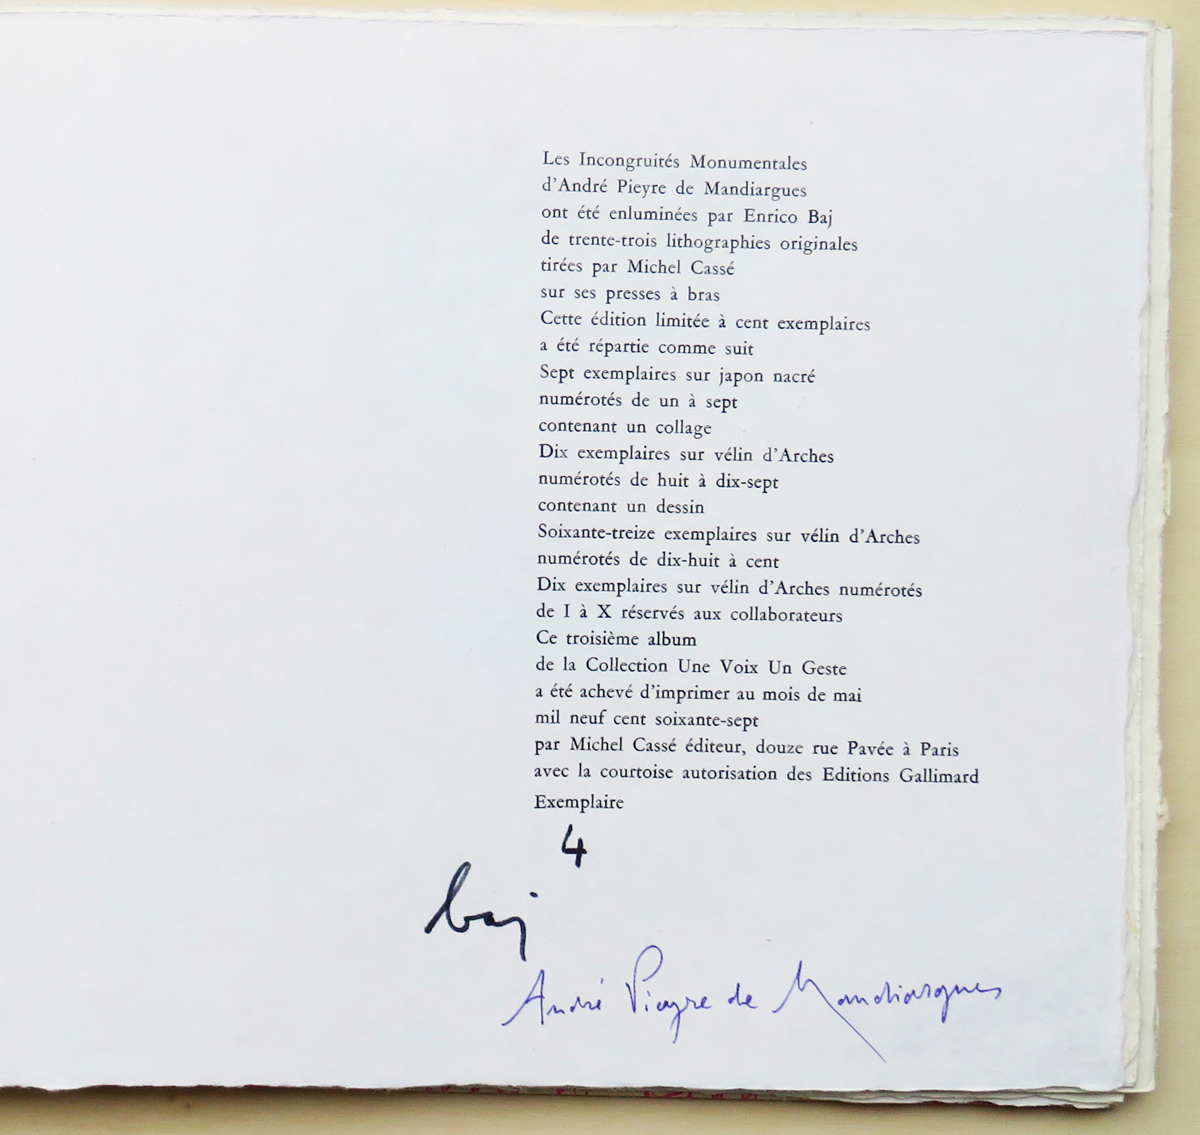 Les Incongruités Monumentales
d'André Pieyre de Mandiargues
ont été enluminées par Enrico Baj
de trente-trois lithographies originales
tirées par Michel Cassé
sur ses presses à bras
Cette édition limitée à cent exemplaires
a été répartie comme suit
Sept exemplaires sur japon nacré
numérotés de un à sept
contenant un collage
Dix exemplaires sur vélin d'Arches
numérotés de huit à dix-sept
contenant un dessin
Soixante-treize exemplaires sur vélin d'Arches
numérotés de dix-huit à cent
Dix exemplaires sur vélin d'Arches numérotés
de I à X réservés aux collaborateurs
Ce troisième album
de la Collection Une Voix Un Geste
a été achevé d'imprimer au mois de mai
mil neuf cent soixante-sept
par Michel Cassé éditeur, douze rue Pavée à Paris
avec la courtoise autorisation des Editions Gallimard
Exemplaire
4
baj
André Pieyre de Mandiargues